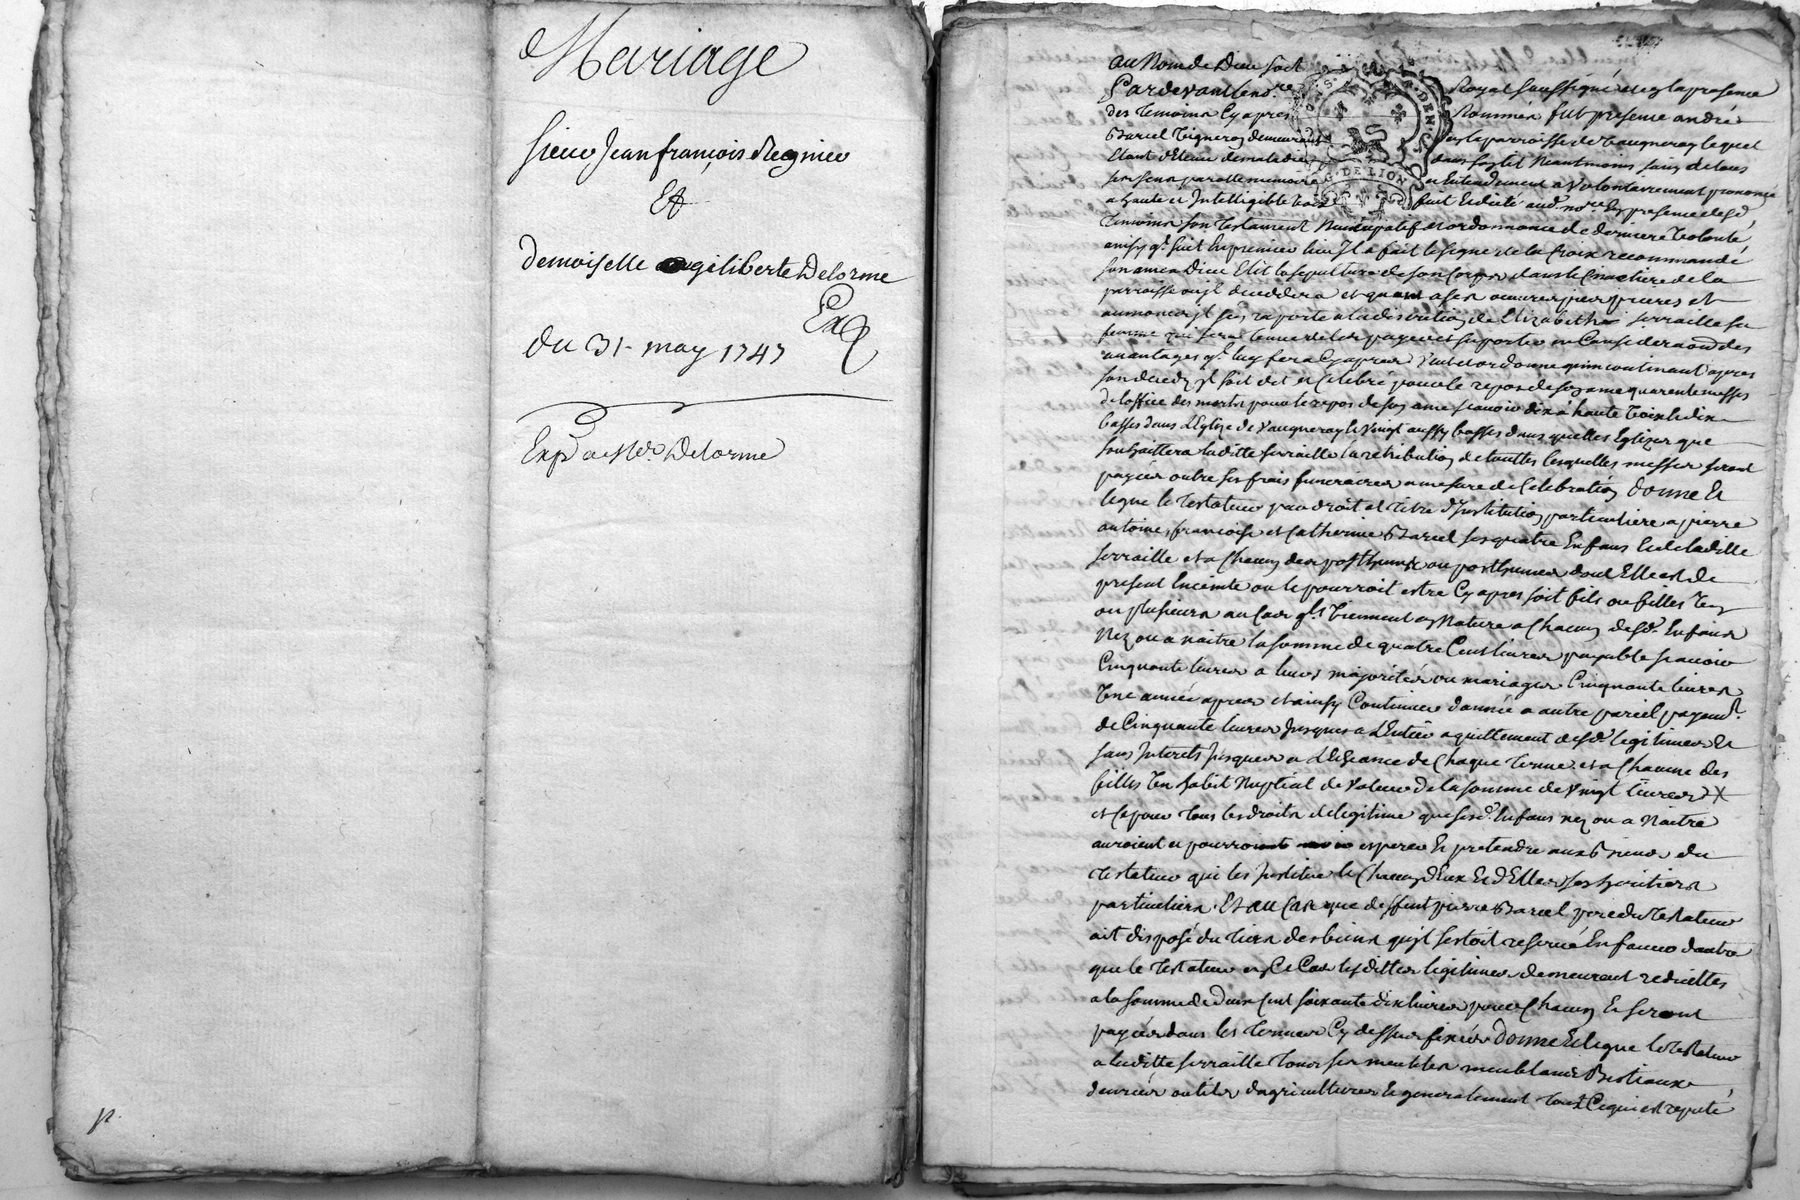 Mariage
Sieur Jean françois Regnier
Et
demoiselle giliberte Delorme
Ex
du 31 may 1747
Exp Delorme
au Nom de Dieu soit
Pardevant le no.re Royal soussigné et en la presence
des Temoins Cy apres Nommés fut present andré
Barcel Vigneron demeurant en la parroisse de Vaugneray lequel
Etant detenu de maladie dans son lit Neantmoins sain de tous
ses sens parolle memoire et Entendement a volontairement prononcé
a haute et Intelligible voix fait et dicté aud. no.re En presence desd.
Temoins son Testament Nuncupatif et ordonnance de derniere Volonté
ainsy q. suit En premier lieu Il a fait le signe de la Croix recommandé
son ame a Dieu Elit la sepulture de son Corps dans le Cimetiere de la
parroisse ou il decedera et quant a ses oeuvres pies prieres et
aumones il s'en raporte a la discretion de Elizabeth serraille sa
femme qui sera tenue de les payer et suporter en Consideration des
avantages q. luy fera Cy apres Veut et ordonne qu'incontinant apres
son deceds il soit dit et Celebré pour le repos de son ame quarente messes
de l'office des morts pour le repos de son ame scavoir dix a haute voix et dix
basses dans L'Eglize de Vaugneray et vingt aussy basses dans quelles Eglizes que
souhaittera laditte serraille la retribution de touttes lesquelles messes seront
payées outre ses frais funeraires a mesure de Celebration Donne Et
legue le Testateur par droit et titre d'Institution particuliere a pierre
antoine, françoise et Catherine Barcel ses quatre Enfans et de laditte
serraille et a Chacun des posthume ou posthumes dont Elle est de
present Enceinte ou le pourroit estre Cy apres soit fils ou filles un
ou plusieurs au Cas q.ls viennent en Nature a Chacun desd. Enfans
Nez ou a naitre la somme de quatre Cent livres payable scavoir
Cinquante livres a leurs majorités ou mariages Cinquante livres
une année apres et ainsy Continuer d'année a autre pareil payem.t
de Cinquante livres Jusques a L'Entier aquittement desd. legitimes Et
sans Interets Jusques a L'Echeance de Chaque terme et a Chacune des
filles un habit Nuptial de valeur de la somme de vingt livres X
et Ce pour tous les droits de legitime que sesd. Enfans nez ou a Naitre
auroient et pourroient esperer Et pretendre aux Biens du
Testateur qui les Institue et Chacun d'Eux Et d'Elles ses heritiers
particuliers. Et au Cas que deffunt pierre Barcel pere du Testateur
ait disposé du tiers des biens qu'il s'estoit reservé En faveur d'autre
que le Testateur en Ce Cas lesdittes legitimes demeurent reduittes
a la somme de deux Cent soixante dix livres pour Chacun Et seront
payées dans les termes Cy dessus fixés Donne Et legue le Testateur
a laditte serraille tous ses meubles meublans Bestiaux
denrées outils d'agriculture et generalement tout Ce qui est reputé